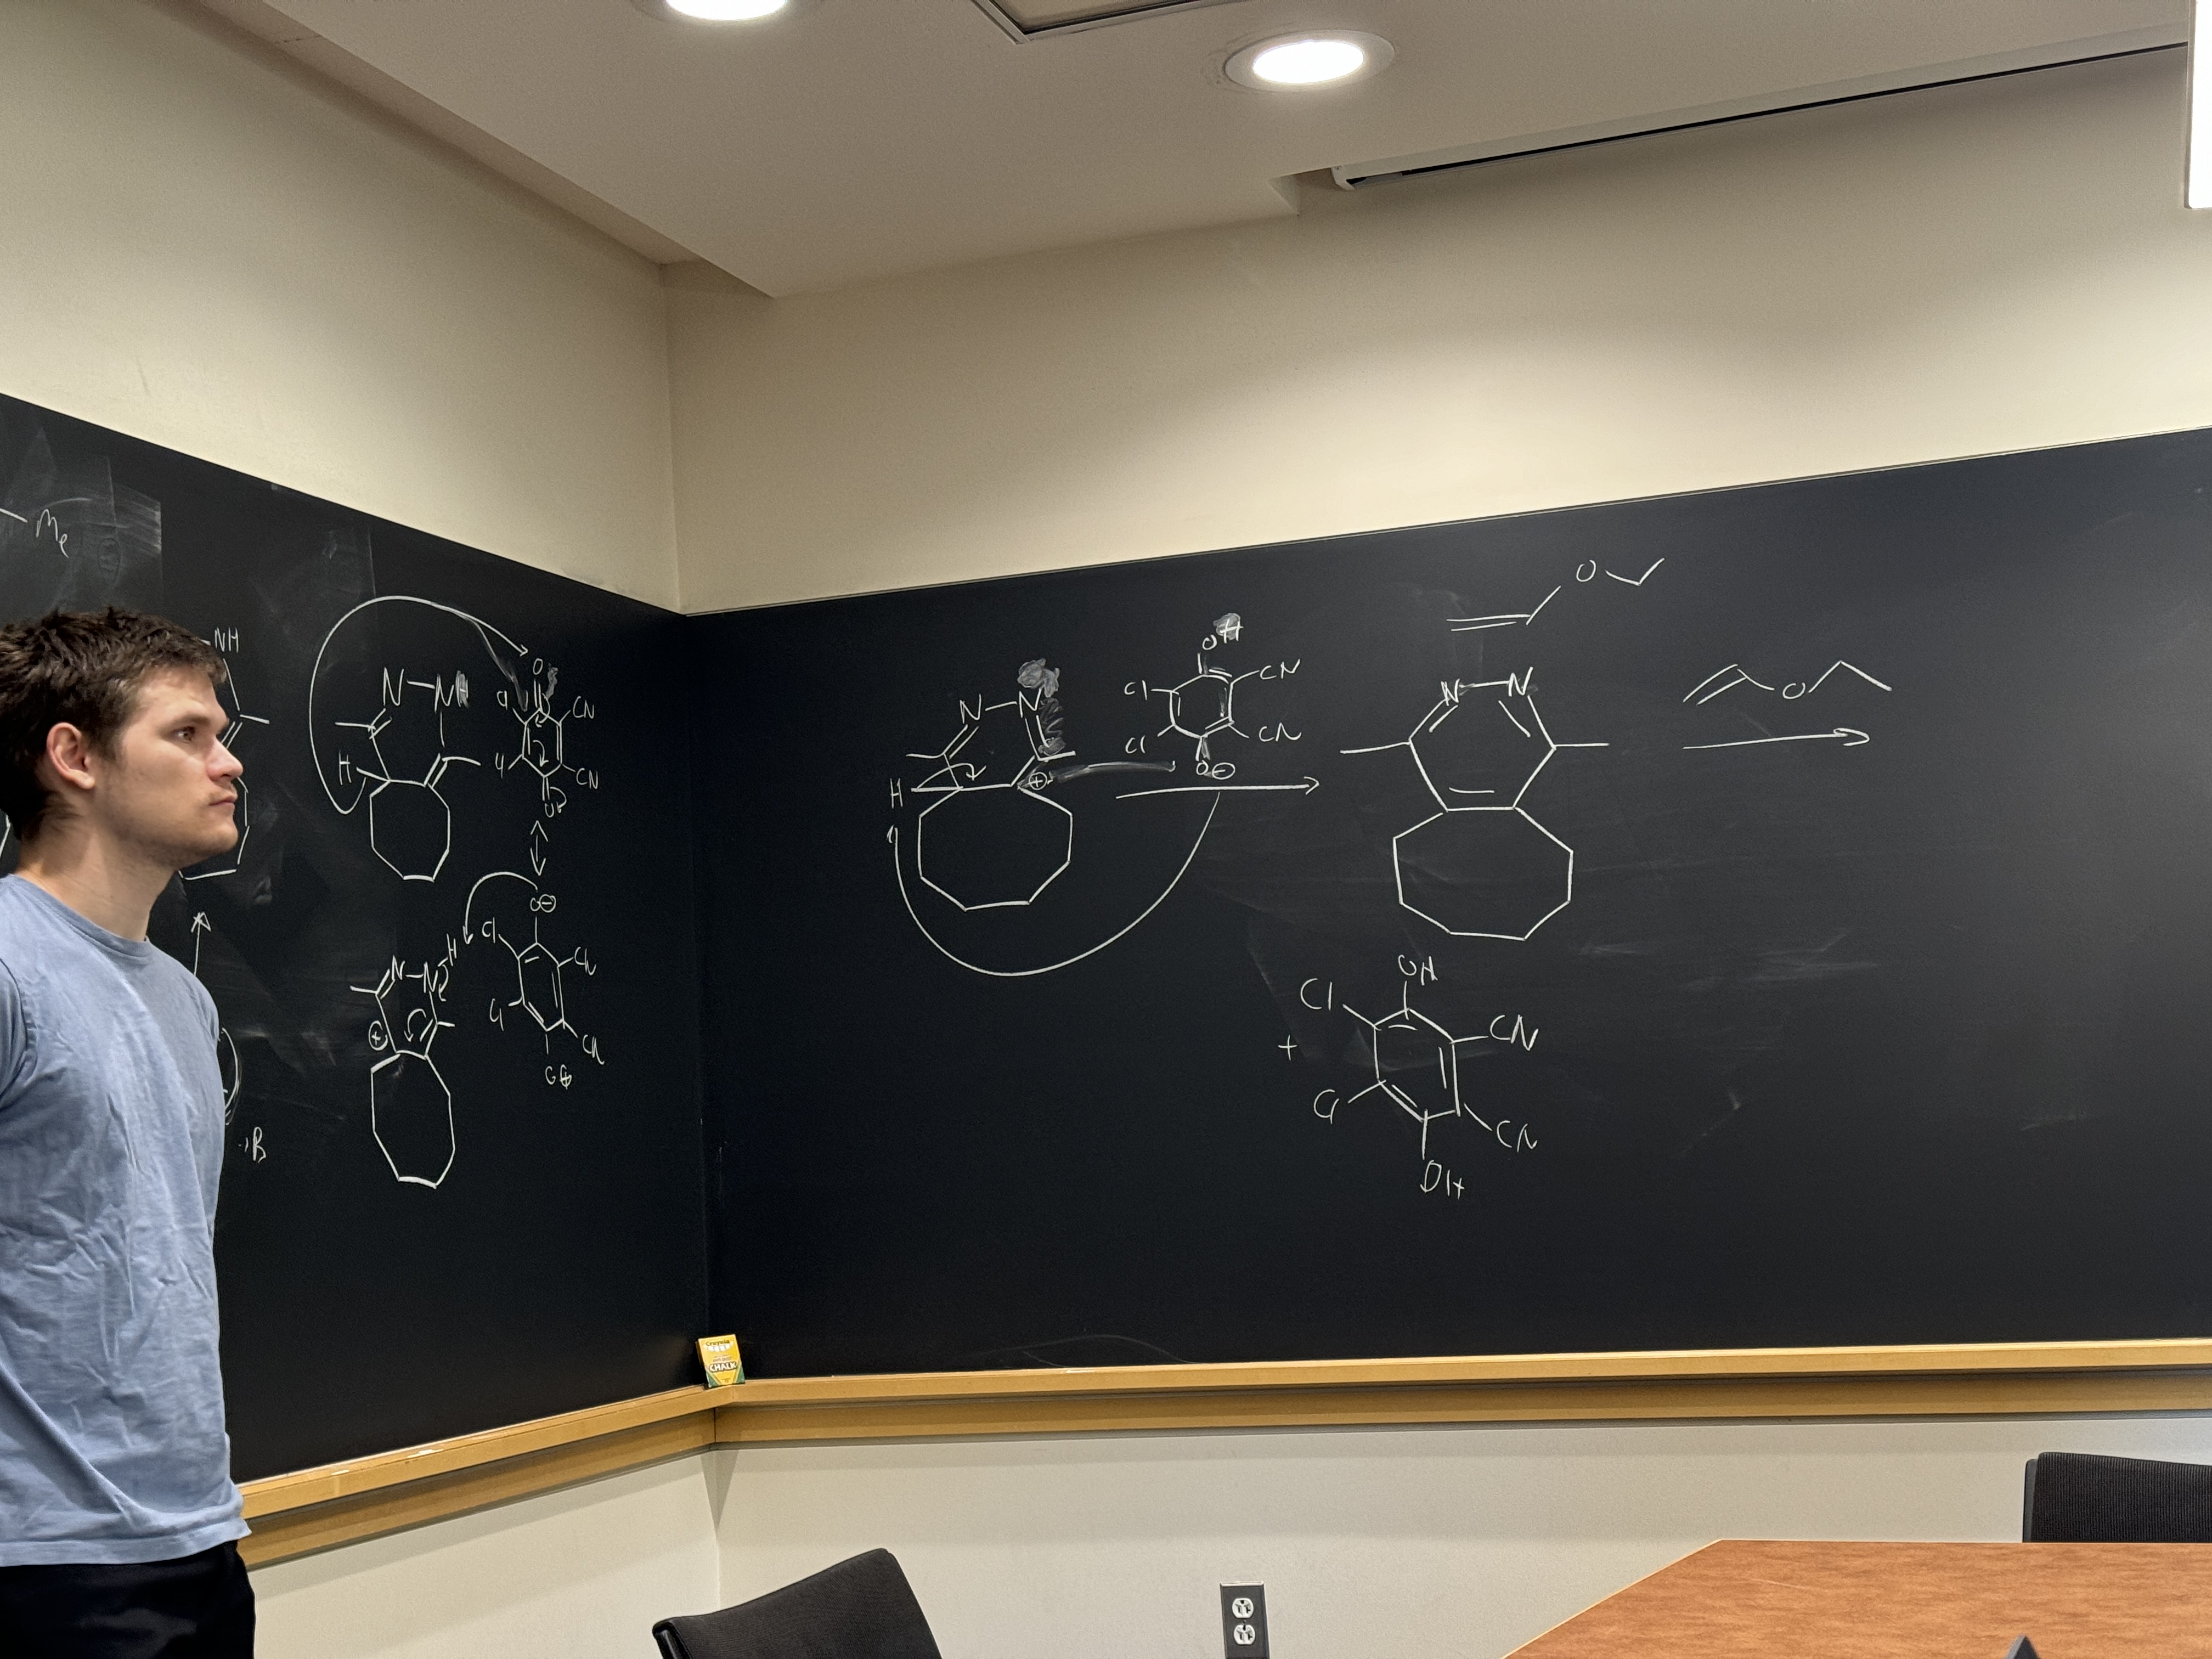 Me
NH
N—NH
H
O
Cl
CN
Cl
CN
O
O⊖
Cl
CN
Cl
CN
N—N
H
⊕
→B
N—N
H
⊕
OH
Cl
CN
Cl
CN
O⊖
O
N—N
O
+
OH
Cl
CN
Cl
CN
OH
Crayola
CHALK